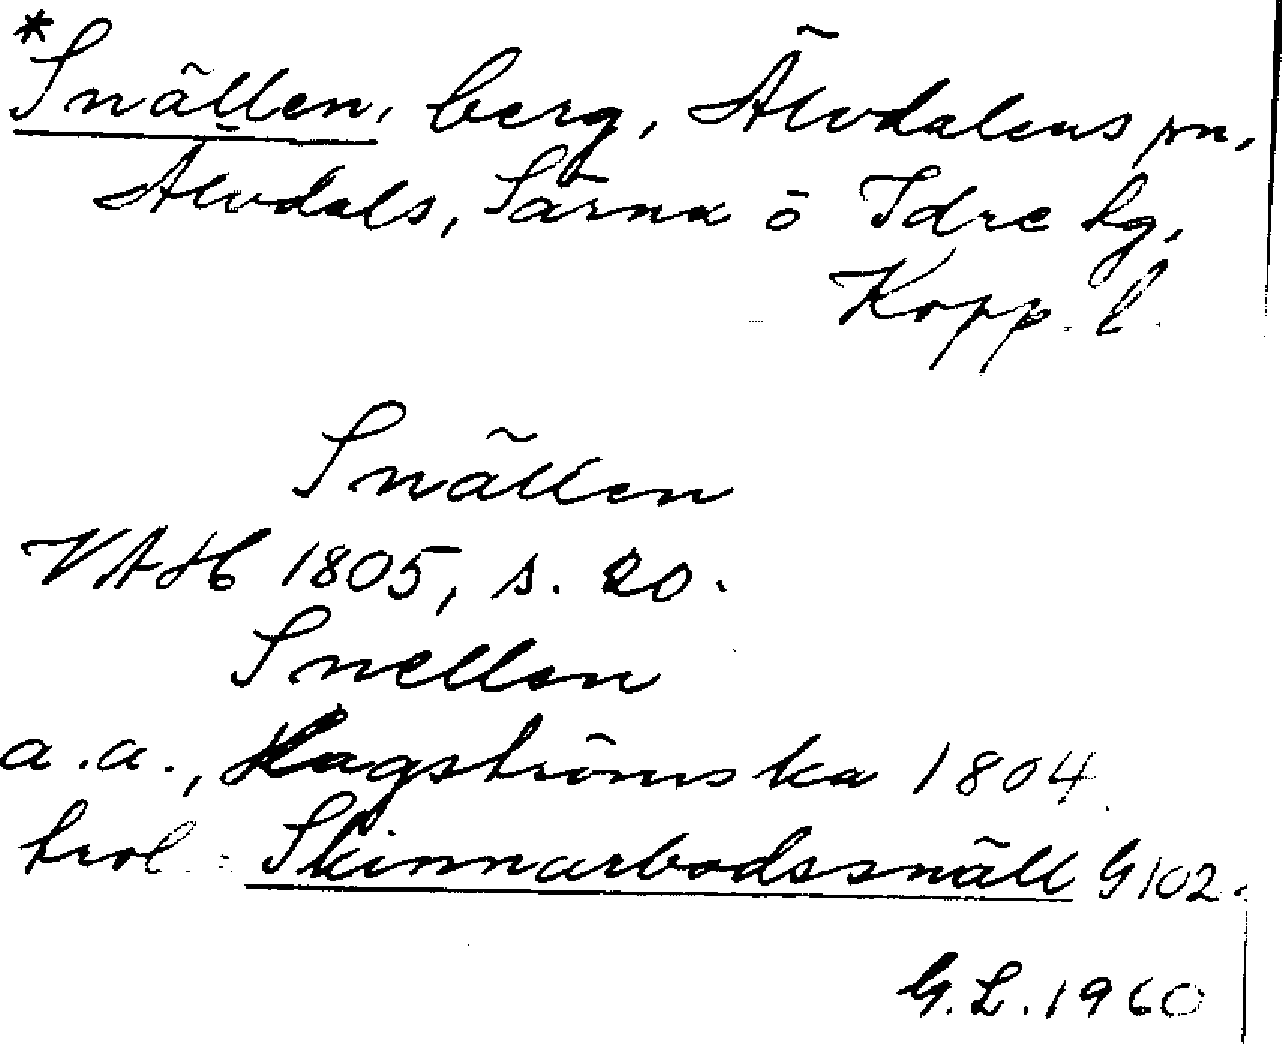 *
Snällen, berg, Älvdalens sn,
Älvdals, Särna o Idre tg,
Kopp. l.
Snällen
VAH 1805, s. 20.
Snellen
a.a., Hagströmska 1804
trol. = Skinnarbodssnäll G 102.
G. L. 1960